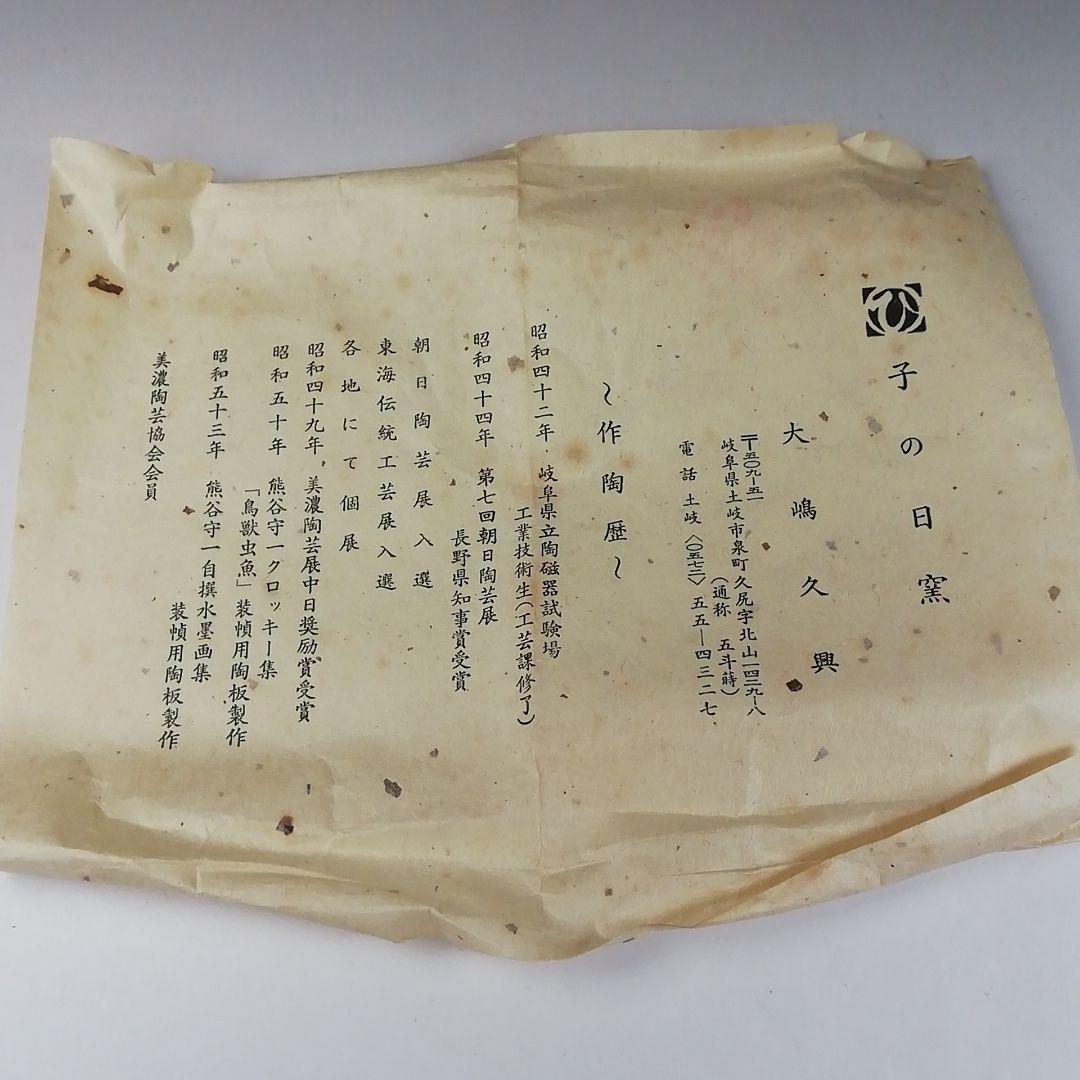 子の日窯
大嶋久興
〒五〇九ー五一
岐阜県土岐市泉町久尻字北山一四二九ー八
(通称 五斗蒔)
電話 土岐〈〇五七二〉五五ー四三二七
～作陶歴～
昭和四十二年 岐阜県立陶磁器試験場
工業技術生(工芸課修了)
昭和四十四年 第七回朝日陶芸展
長野県知事賞受賞
朝日陶芸展入選
東海伝統工芸展入選
各地にて個展
昭和四十九年 美濃陶芸展中日奨励賞受賞
昭和五十年 熊谷守一クロッキー集
「鳥獣虫魚」装幀用陶板製作
昭和五十三年 熊谷守一自撰水墨画集
装幀用陶板製作
美濃陶芸協会会員